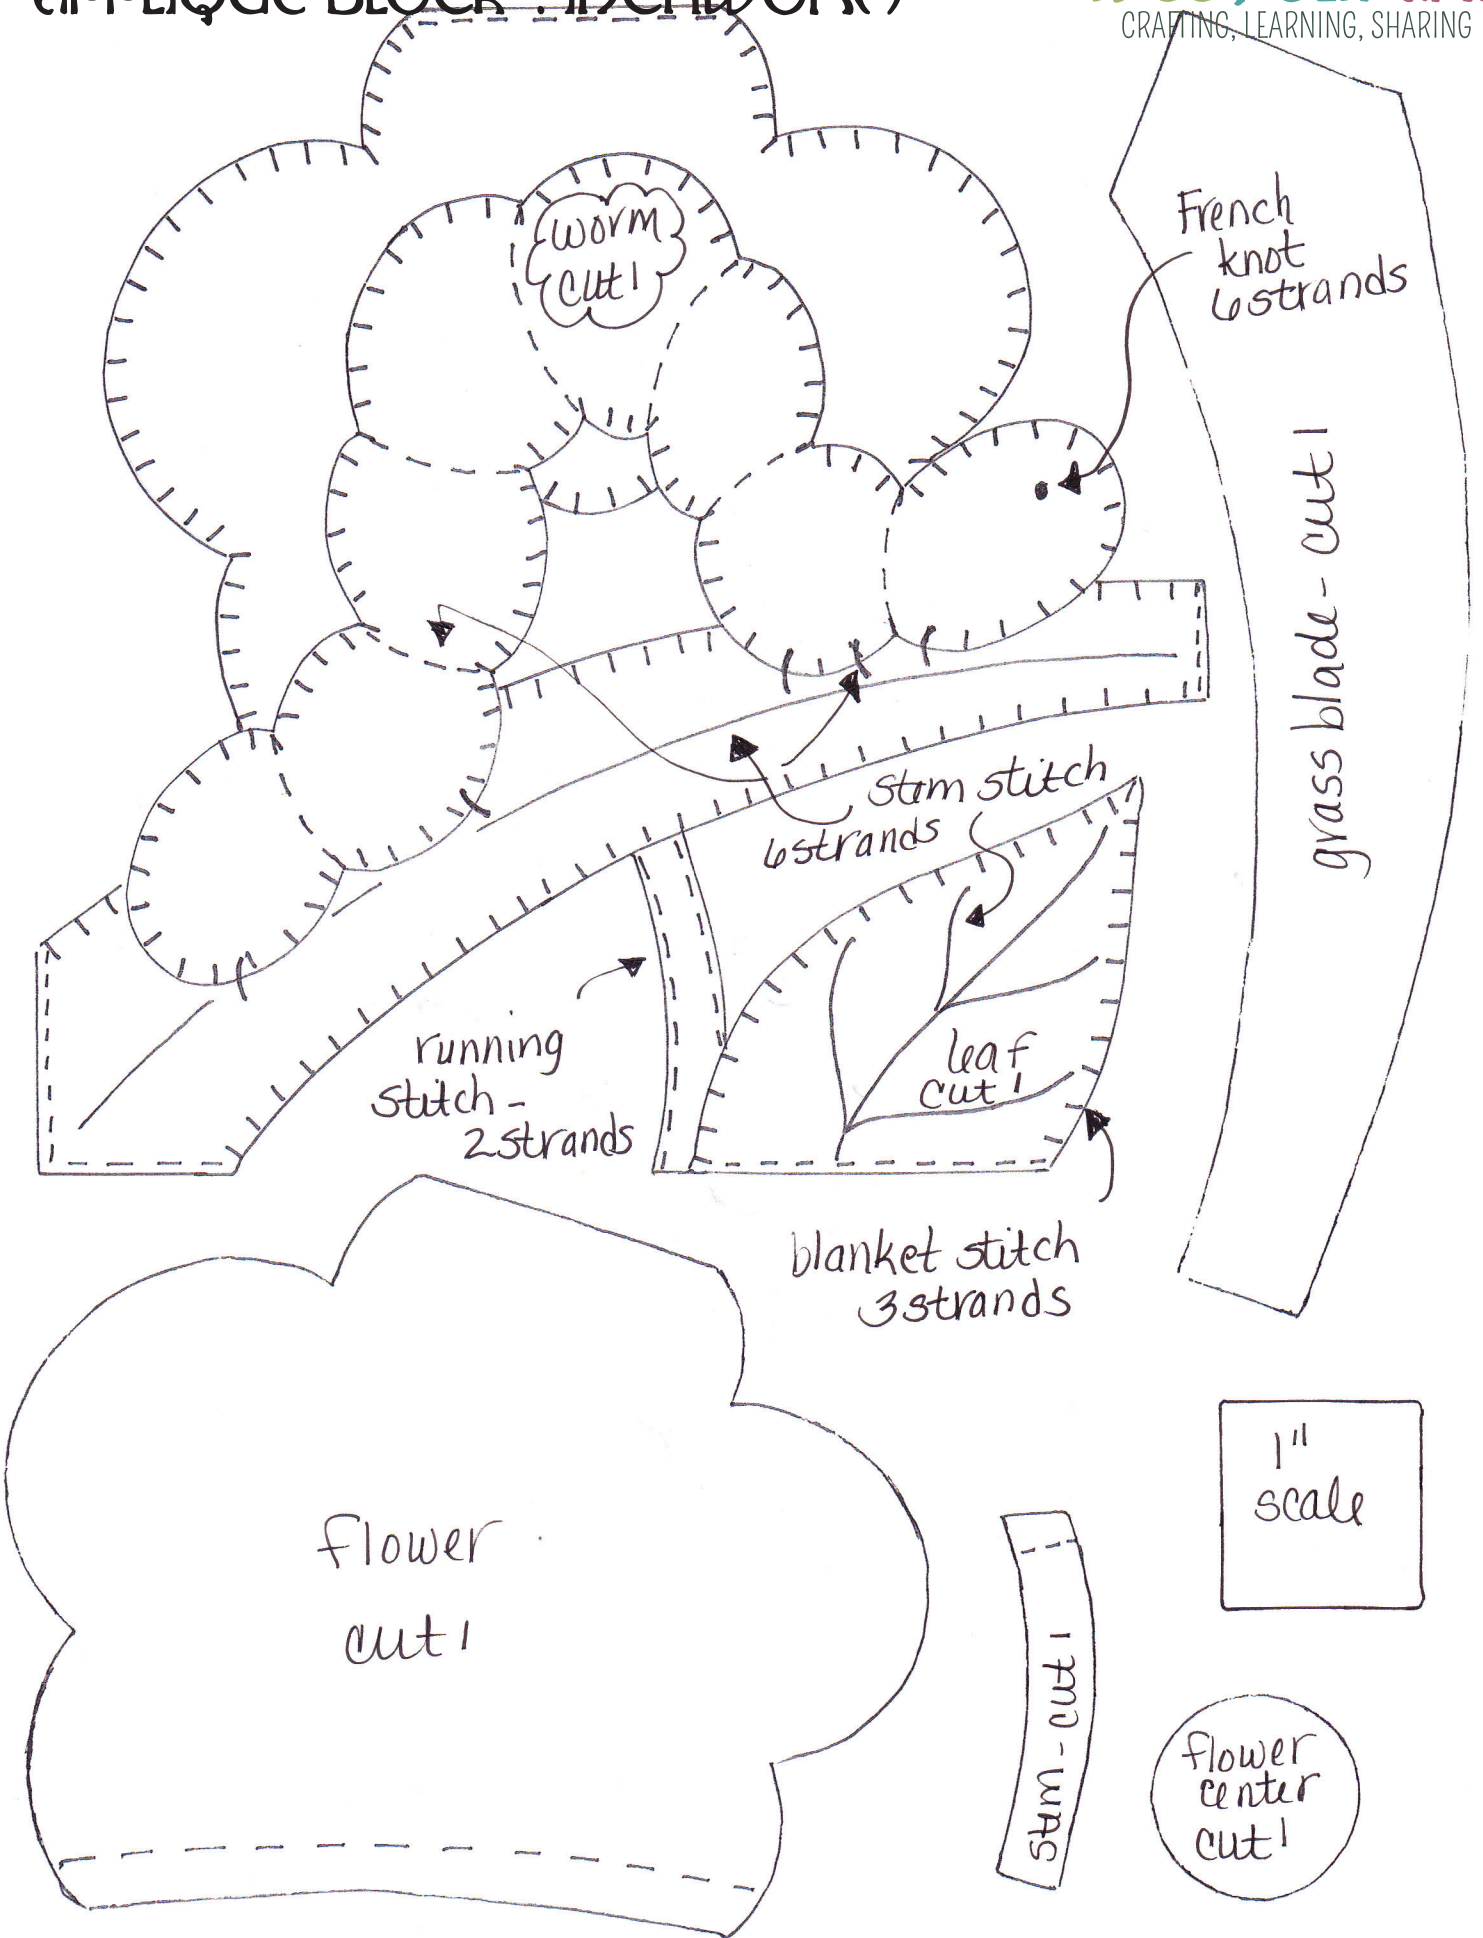 CRAFTING, LEARNING, SHARING
worm
cut 1
French
knot
6 strands
grass blade - cut 1
stem stitch
6 strands
running
stitch -
2 strands
leaf
cut 1
blanket stitch
3 strands
flower
cut 1
1"
scale
stem - cut 1
flower
center
cut 1